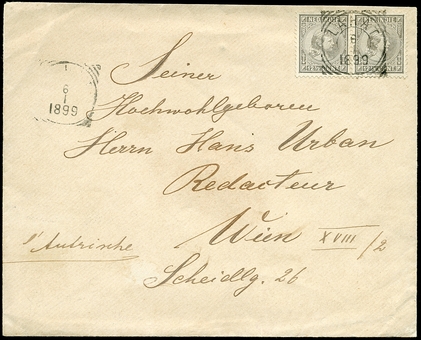 NED. INDIË NED. INDIË
1899
6
1
1899
Seiner
Hochwohlgeboren
Herrn Hans Urban
Redacteur
Wien XVIII/2
l'Autriche
Scheidlg. 26